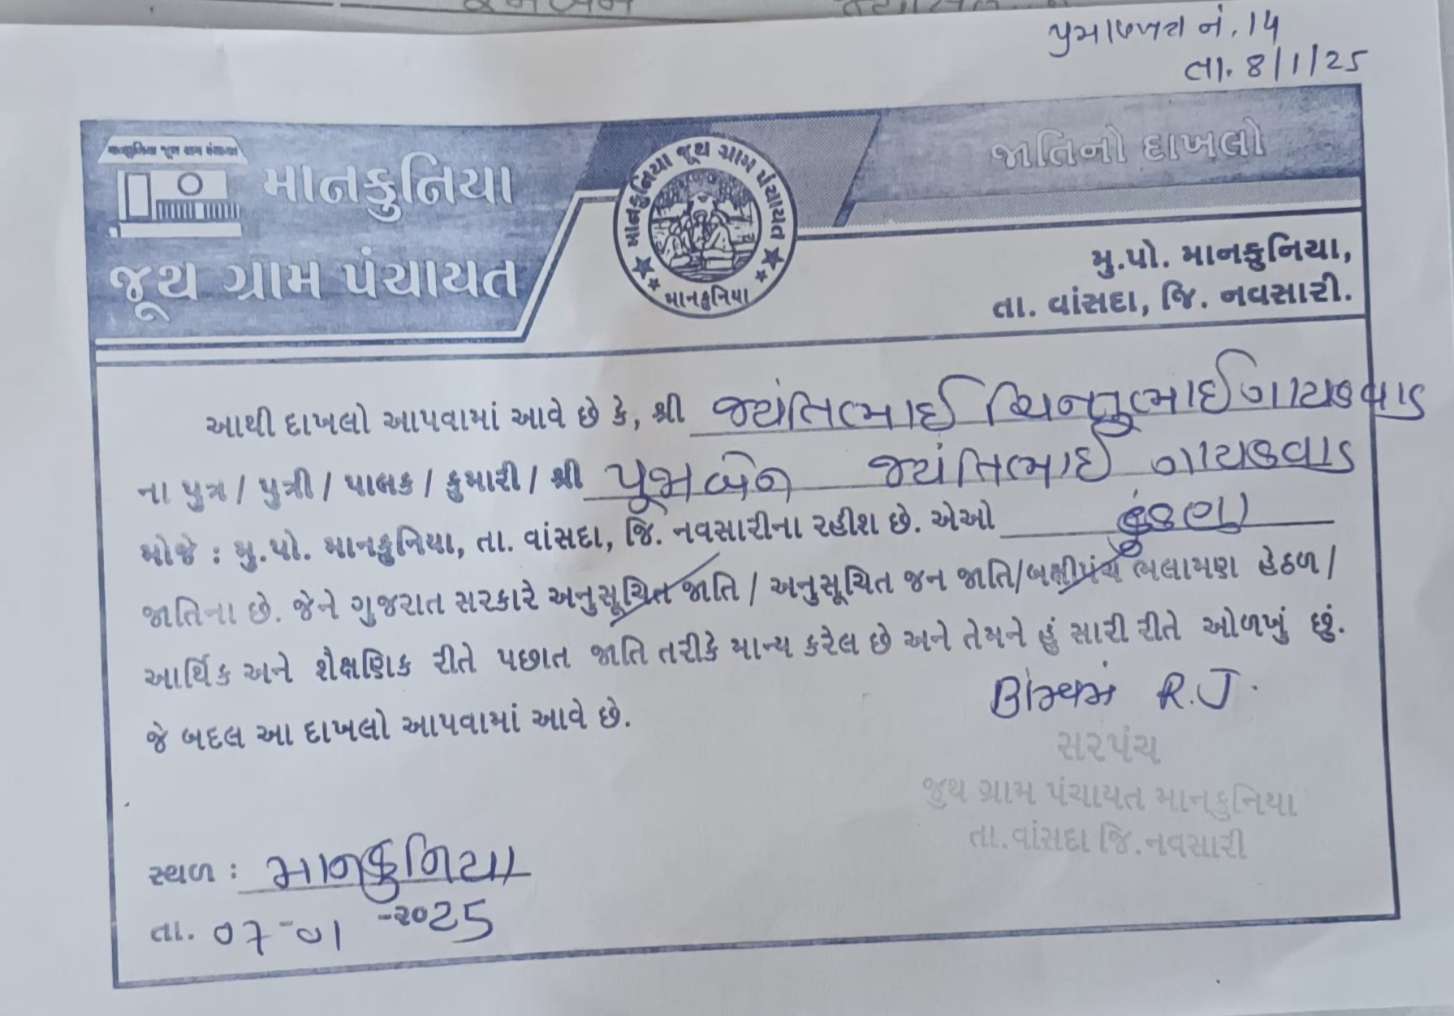 પ્રમાણપત્ર નં. 14
તા. 8/1/25
માનકુનિયા જૂથ ગ્રામ પંચાયત
માનકુનિયા
જૂથ ગ્રામ પંચાયત
માનકુનિયા જૂથ ગ્રામ પંચાયત
માનકુનિયા
જાતિનો દાખલો
મુ.પો. માનકુનિયા,
તા. વાંસદા, જિ. નવસારી.
આથી દાખલો આપવામાં આવે છે કે, શ્રી જયંતિભાઈ ચિનતુભાઈ ગાયકવાડ
ના પુત્ર / પુત્રી / પાલક / કુમારી / શ્રી પૂજાબેન જયંતિભાઈ ગાયકવાડ
મોજે : મુ.પો. માનકુનિયા, તા. વાંસદા, જિ. નવસારીના રહીશ છે. એઓ કુંકણા
જાતિના છે. જેને ગુજરાત સરકારે અનુસૂચિત જાતિ / અનુસૂચિત જન જાતિ/બક્ષીપંચ ભલામણ હેઠળ /
આર્થિક અને શૈક્ષણિક રીતે પછાત જાતિ તરીકે માન્ય કરેલ છે અને તેમને હું સારી રીતે ઓળખું છું.
જે બદલ આ દાખલો આપવામાં આવે છે.
R.J.
સરપંચ
જુથ ગ્રામ પંચાયત માનકુનિયા
તા.વાંસદા જિ.નવસારી
સ્થળ : માનકુનિયા
તા. 07-01-2025